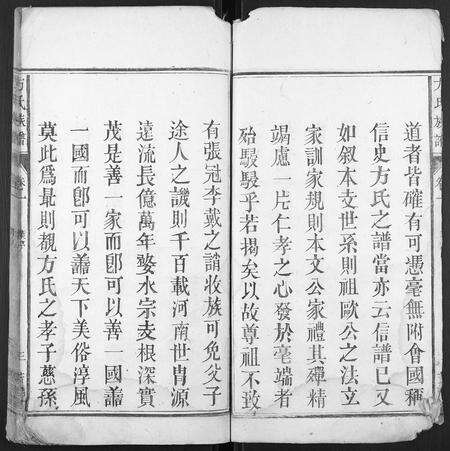 道者皆確有可憑毫無附會國稱
信史方氏之譜當亦云信譜已又
如叙本支世系則祖歐公之法立
家訓家規則本文公家禮其殫精
竭慮一片仁孝之心發於毫端者
殆駸駸乎若揭矣以故尊祖不致
有張冠李戴之誚收族可免父子
途人之譏則千百載河南世胄源
遠流長億萬年婺水宗支根深實
茂是善一家而卽可以善一國譱
一國而卽可以譱天下美俗淳風
莫此爲最則覩方氏之孝子慈孫
方氏族譜
卷一